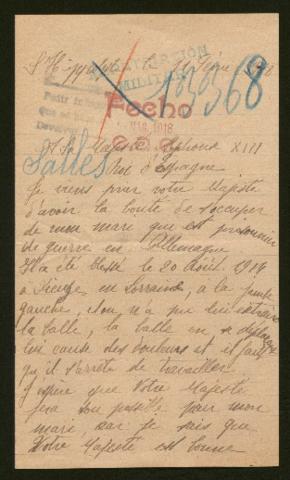 St Hippolyte
MILITAR
133968
Fecho
1918
Salles
A Sa Majesté Alphonse XIII
Roi d'Espagne
Je viens prier votre Majesté
d'avoir la bonté de s'occuper
de mon mari qui est prisonnier
de guerre en Allemagne
Il a été blessé le 20 Août 1914
à en Lorraine, a la jambe
gauche, et on n'a pu lui extraire
la balle, la balle en se déplaçant
lui cause des douleurs et il faut
qu'il s'arrête de travailler
J'espère que Votre Majesté
fera son possible pour mon
mari, car je sais que
Votre Majesté est bonne